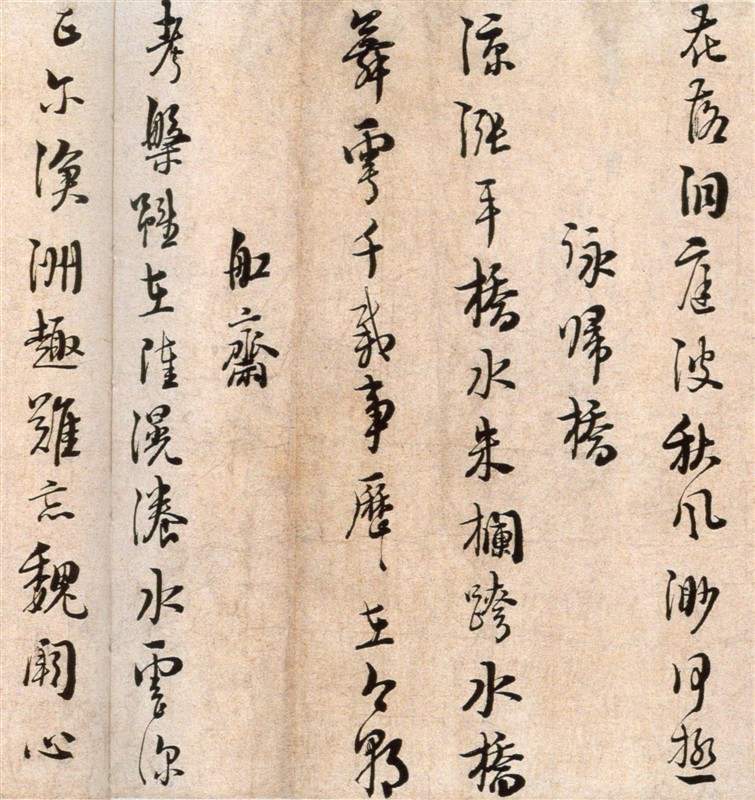 花落洞庭波秋風渺何極
詠歸橋
淥漲平橋水朱欄跨水橋
舞雩千載事歷々在今朝
舡齋
考槃雖在陸滉瀁水雲深
正爾滄洲趣難忘魏闕心